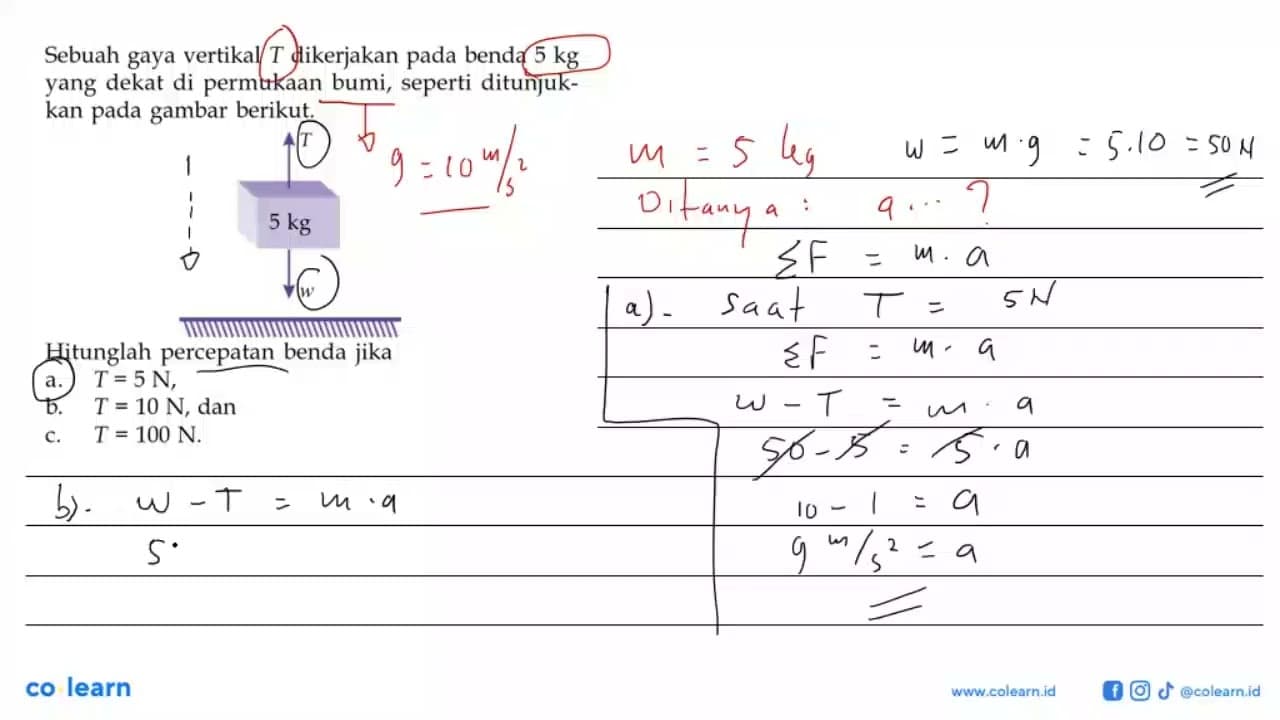 Sebuah gaya vertikal T dikerjakan pada benda 5 kg
yang dekat di permukaan bumi, seperti ditunjuk-
kan pada gambar berikut.
T
g = 10 m/s²
5 kg
w
Hitunglah percepatan benda jika
a. T = 5 N,
b. T = 10 N, dan
c. T = 100 N.
m = 5 kg
w = m·g = 5.10 = 50 N
Ditanya : a... ?
ΣF = m. a
a). saat T = 5N
ΣF = m. a
w - T = m . a
50 - 5 = 5 . a
10 - 1 = a
9 m/s² = a
b). w - T = m . a
5
co learn
www.colearn.id
@colearn.id